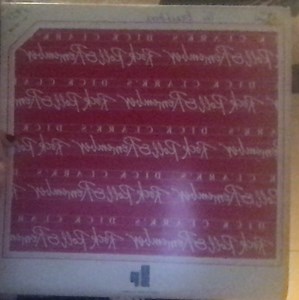 K CLARK'S DICK CLARK
Roll & Remember Rock Roll & Remember
DICK CLARK'S DICK CLAR
Rock Roll & Remember Rock Roll & Remember
K CLARK'S DICK CLARK
Rock Roll & Remember Rock Roll & Remember
K CLARK'S DICK CLARK
Roll & Remember Rock Roll & Remember
DICK CLARK'S DICK CLAR
Rock Roll & Remember Rock Roll & Remember